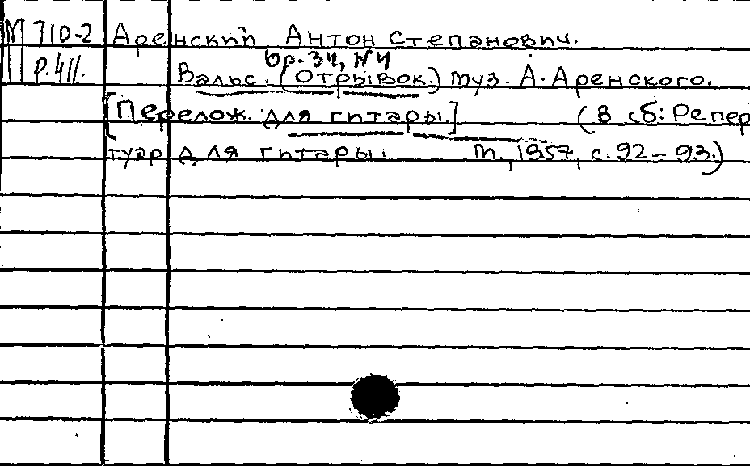 М 710-2 Аренский Антон Степанович.
Op. 34, N4
р.411. Вальс. (Отрывок.) Муз. А. Аренского.
[Перелож. для гитары.] (В сб: Репер
туар для гитары. М., 1957, с. 92-93.)